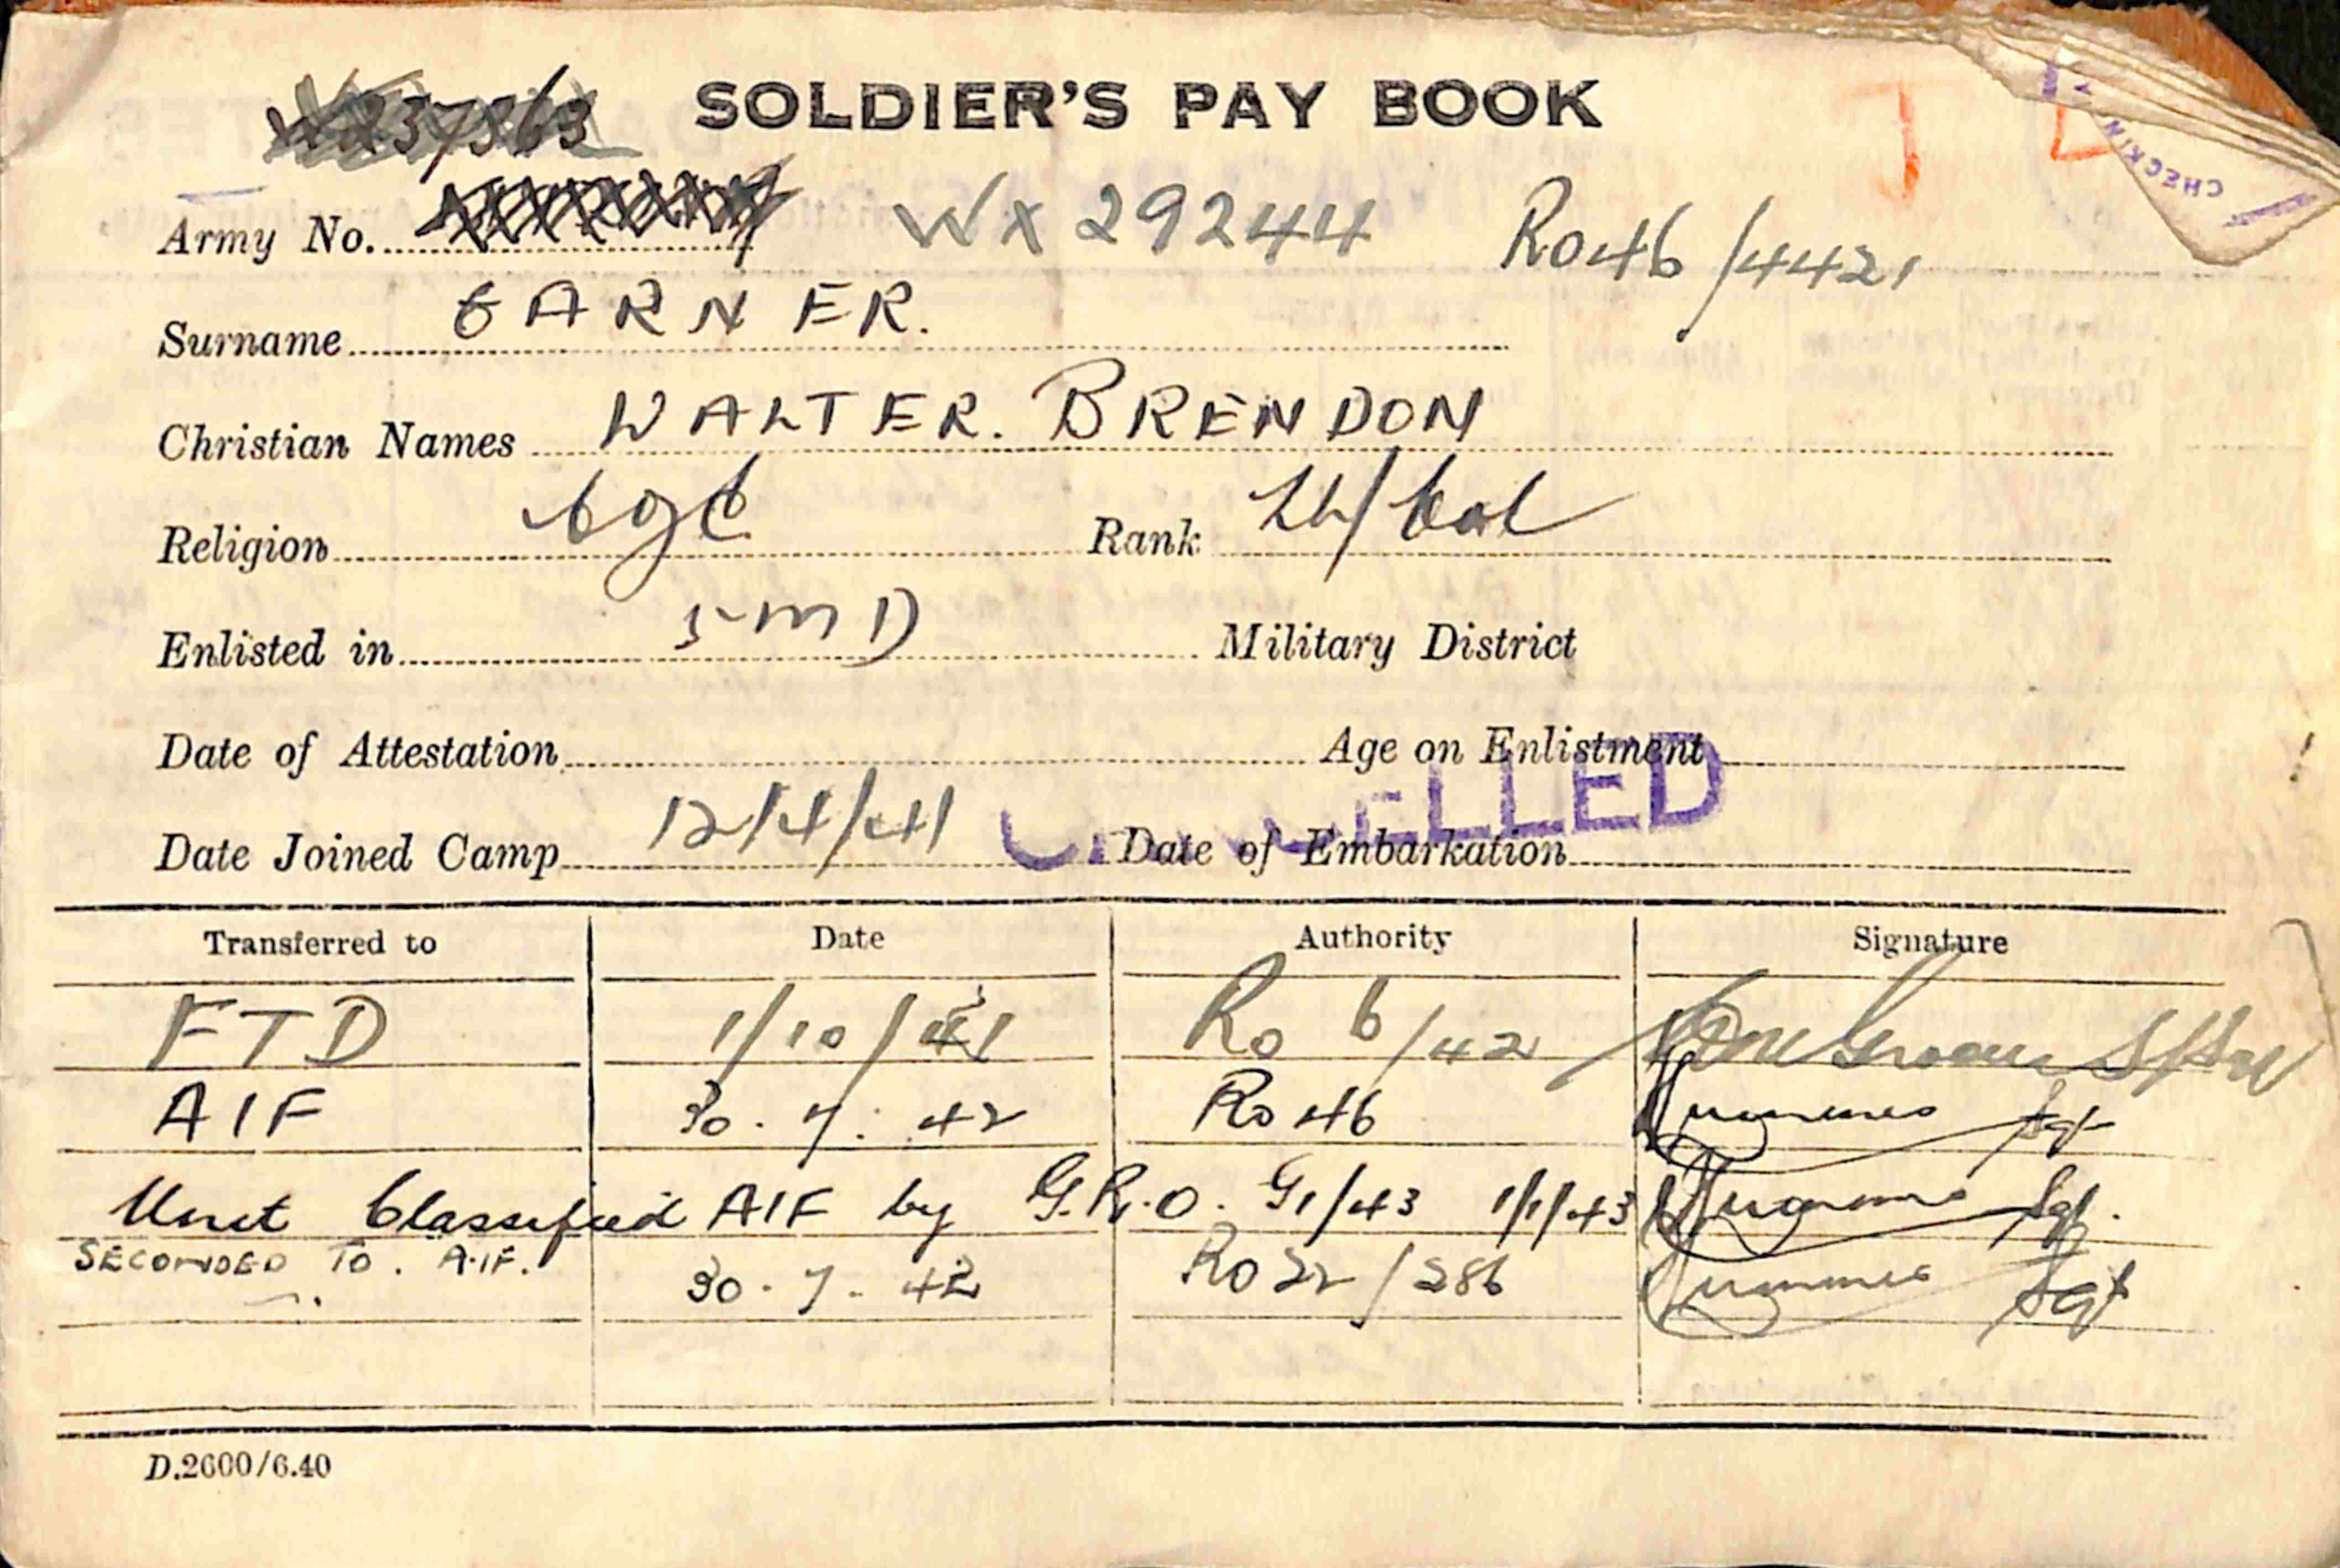 SOLDIER'S PAY BOOK
Army No. WX 29244 Ro46/4421
CHECKIN
Surname GARNER.
Christian Names WALTER. BRENDON
Religion CofE Rank Lt/Col
Enlisted in 5 MD Military District
Date of Attestation Age on Enlistment
CANCELLED
Date Joined Camp 12/4/41 Date of Embarkation
Transferred to Date Authority Signature
FTD 1/10/41 Ro 6/42
AIF 30.7.42 Ro 46 Sgt
Unit Classified AIF by G.R.O. G1/43 1/1/43 Sgt.
SECONDED TO. A.I.F. 30.7.42 Ro 22/286 Sgt
D.2600/6.40